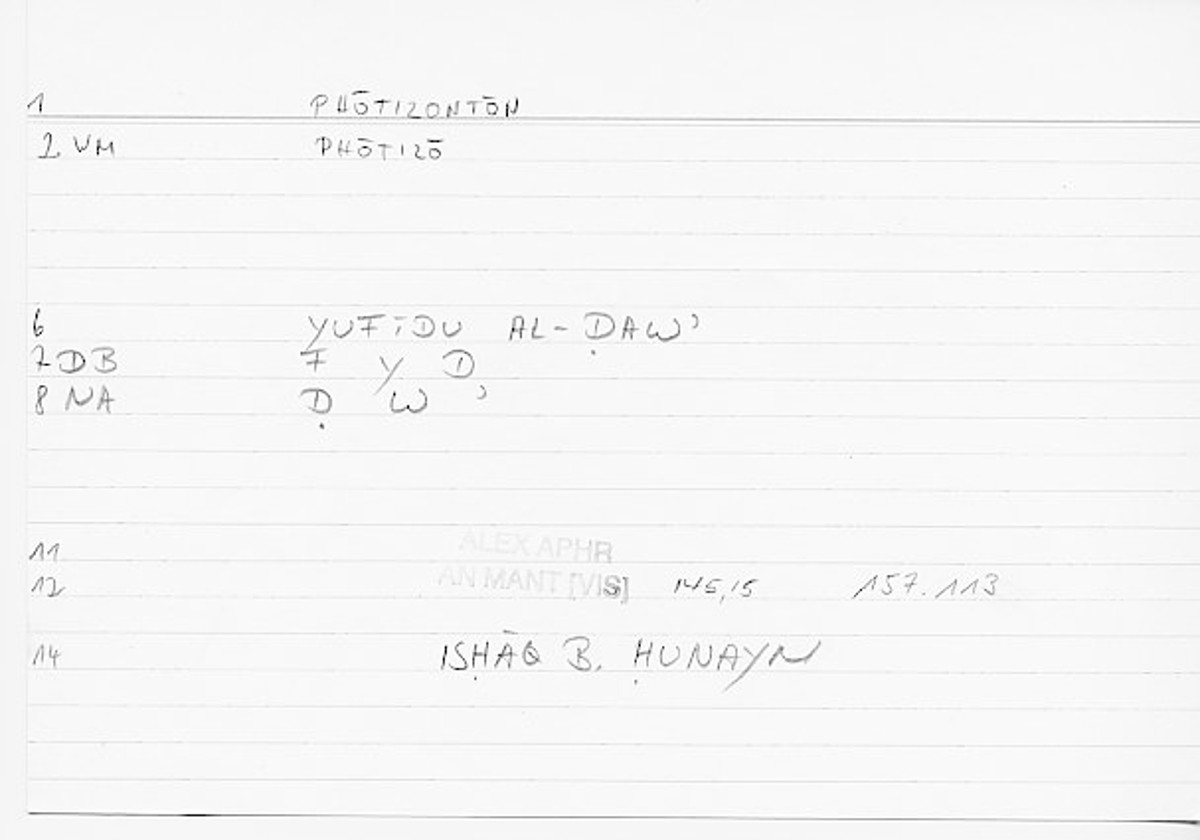 1 PHŌTIZONTŌN
2 VM PHŌTIZŌ
6 YUFĪDU AL-ḌAWʾ
7 DB F Y D
8 NA Ḍ W ʾ
11 ALEX APHR
12 AN MANT [VIS] 145,15 157.113
14 ISḤĀQ B. ḤUNAYN